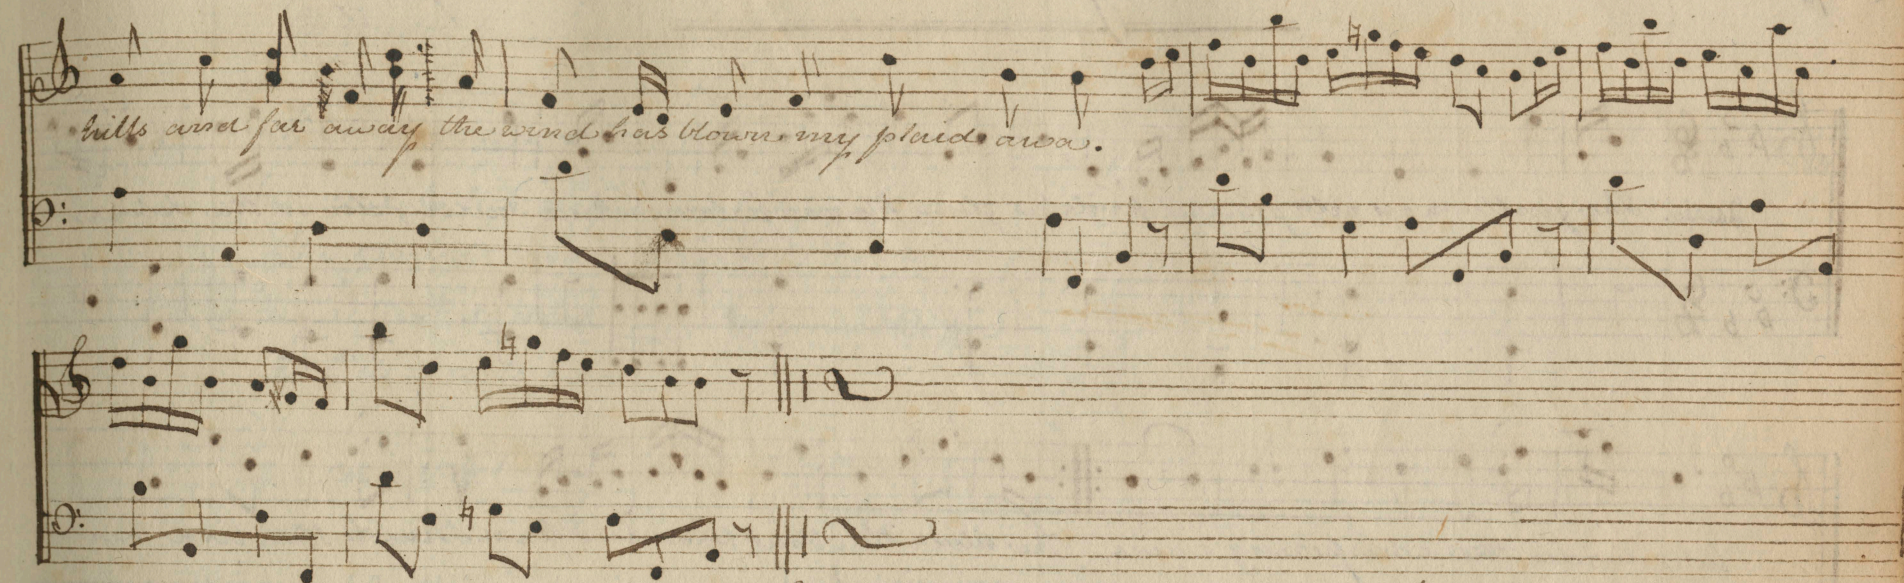 hills and far away the wind has blown my plaid awa.